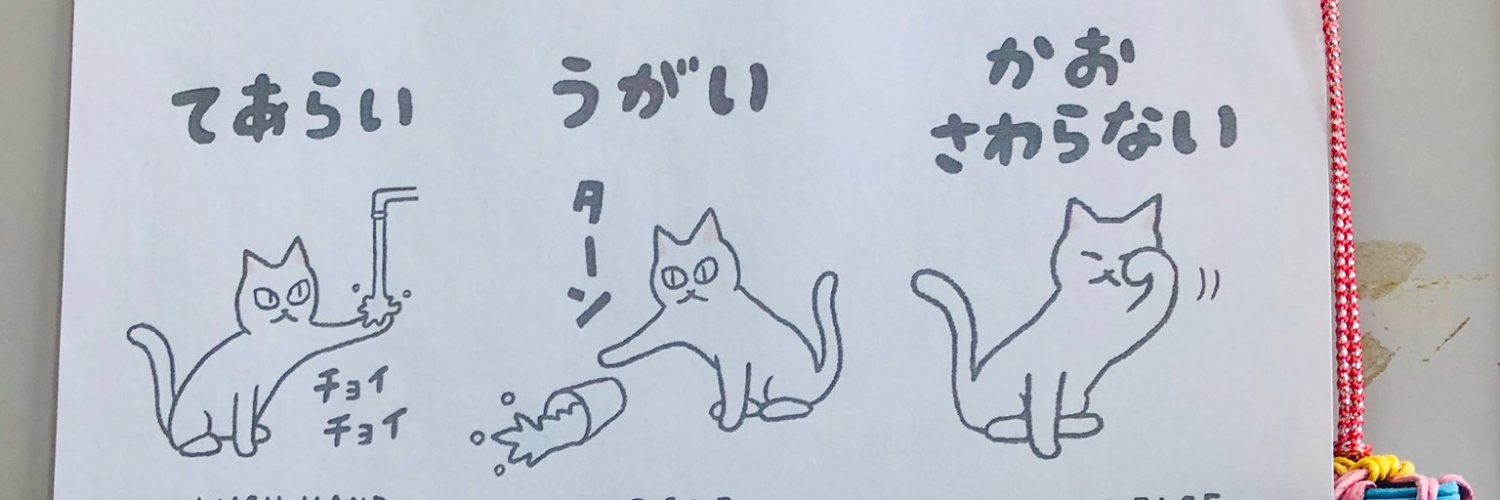 てあらい
うがい
かお
さわらない
ターン
チョイ
チョイ